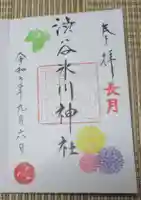 奉拝
長月
渋谷氷川神社
令和六年九月六日